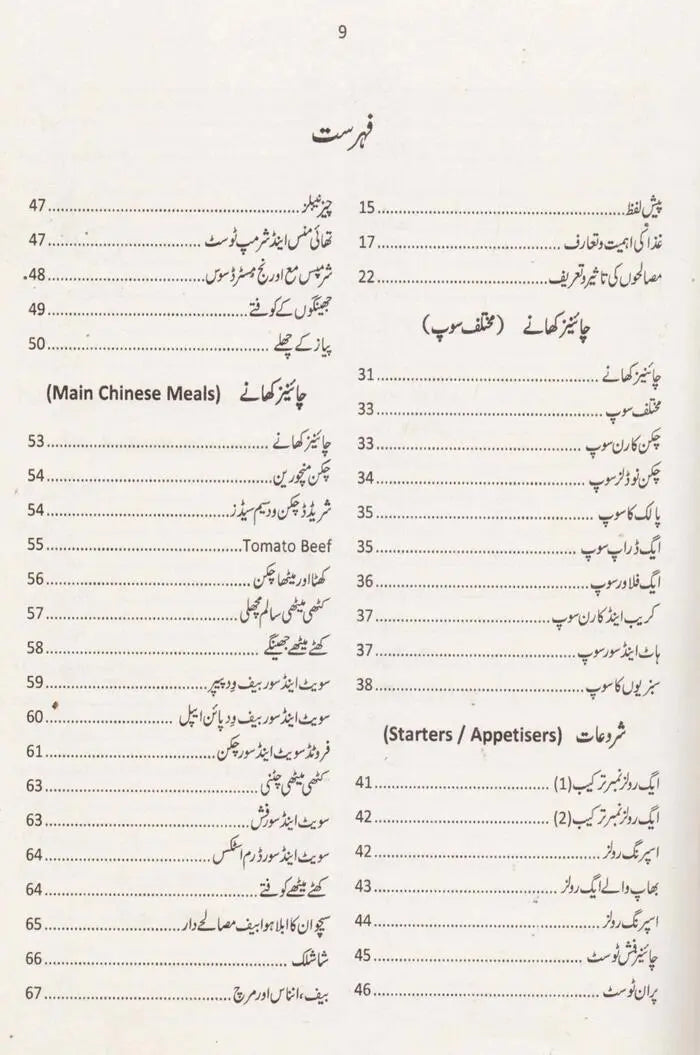 9
فہرست
پیش لفظ 15
غذا کی اہمیت و تعارف 17
مصالحوں کی تاثیر و تعریف 22
چائنیز کھانے (مختلف سوپ)
چائنیز کھانے 31
مختلف سوپ 33
چکن کارن سوپ 33
چکن نوڈلز سوپ 34
پالک کا سوپ 35
ایگ ڈراپ سوپ 35
ایگ فلاور سوپ 36
کریب اینڈ کارن سوپ 37
ہاٹ اینڈ سور سوپ 37
سبزیوں کا سوپ 38
شروعات (Starters / Appetisers)
ایگ رولز نمبر ترکیب (1) 41
ایگ رولز نمبر ترکیب (2) 42
اسپرنگ رولز 42
بھاپ والے ایگ رولز 43
اسپرنگ رولز 44
چائنیز فش ٹوسٹ 45
پران ٹوسٹ 46
چیز نبلز 47
تھائی منس اینڈ شرمپ ٹوسٹ 47
شرمپس مع اورنج مسٹرڈ سوس 48
جھینگوں کے کوفتے 49
پیاز کے چھلے 50
چائنیز کھانے (Main Chinese Meals)
چائنیز کھانے 53
چکن منچورین 54
شریڈڈ چکن ود سیم سیڈز 54
Tomato Beef 55
کھٹا اور میٹھا چکن 56
کھٹی میٹھی سالم مچھلی 57
کھٹے میٹھے جھینگے 58
سویٹ اینڈ سور بیف وِد پیپر 59
سویٹ اینڈ سور بیف ود پائن ایپل 60
فروٹڈ سویٹ اینڈ سور چکن 61
کھٹی میٹھی چٹنی 63
سویٹ اینڈ سور فش 63
سویٹ اینڈ سور ڈرم اسٹکس 64
کھٹے میٹھے کوفتے 64
سیچوان کا ابلا ہوا بیف مصالحے دار 65
شاشلک 66
بیف، انناس اور مرچ 67